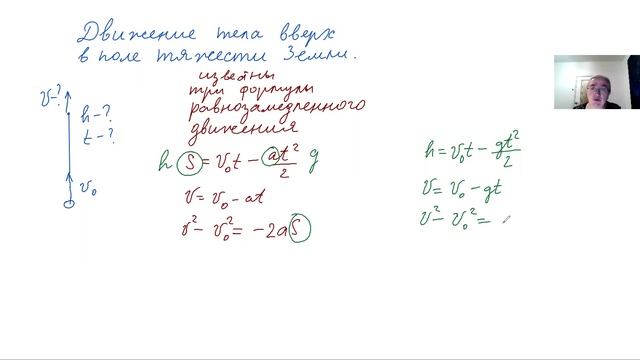 Движение тела вверх
в поле тяжести Земли.
известны
три формулы
равнозамедленного
движения
v-?
h-?
t-?
v₀
h S = v₀t - at²/2 g
v = v₀ - at
v² - v₀² = -2aS
h = v₀t - gt²/2
v = v₀ - gt
v² - v₀² =